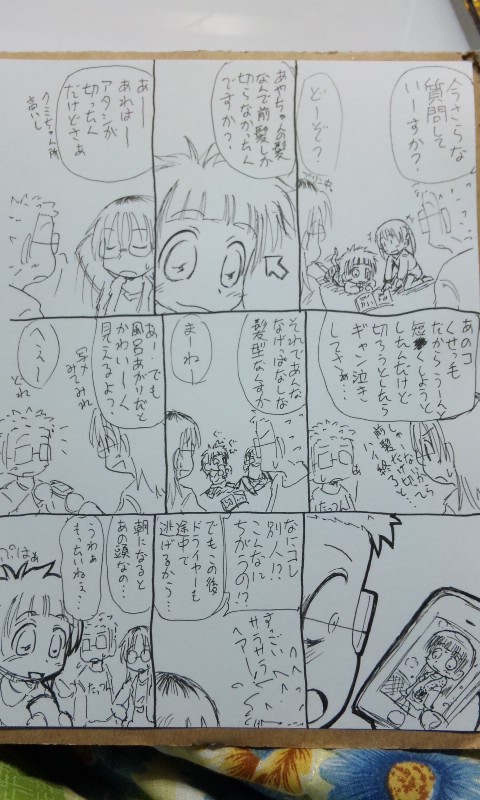 今さらな
質問して
いーすか？
どーぞ？
あやちゃんの髪
なんで前髪しか
切らなかったん
ですか？
あー
あれはー
アタシが
切ったん
だけどさぁ
クミちゃん所
高いし
あのコ
くせっ毛
だからうーんと
短くしようと
したんだけど
切ろうとしたら
ギャン泣き
してさぁ…
それであんな
なげっぱなしな
髪型なんすか
まーねー
あ…でも
風呂あがりだと
かわいーく
見えるよ
写メ
みてみれ
へぇー
どれ
なにコレ
別人!?
こんなに
ちがうの!?
すっごい
サラサラ
ヘアー
でもこの後
ドライヤーも
途中で
逃げるから…
朝になると
あの頭なの…
うわぁ
もったいねぇ…
ぷはぁ